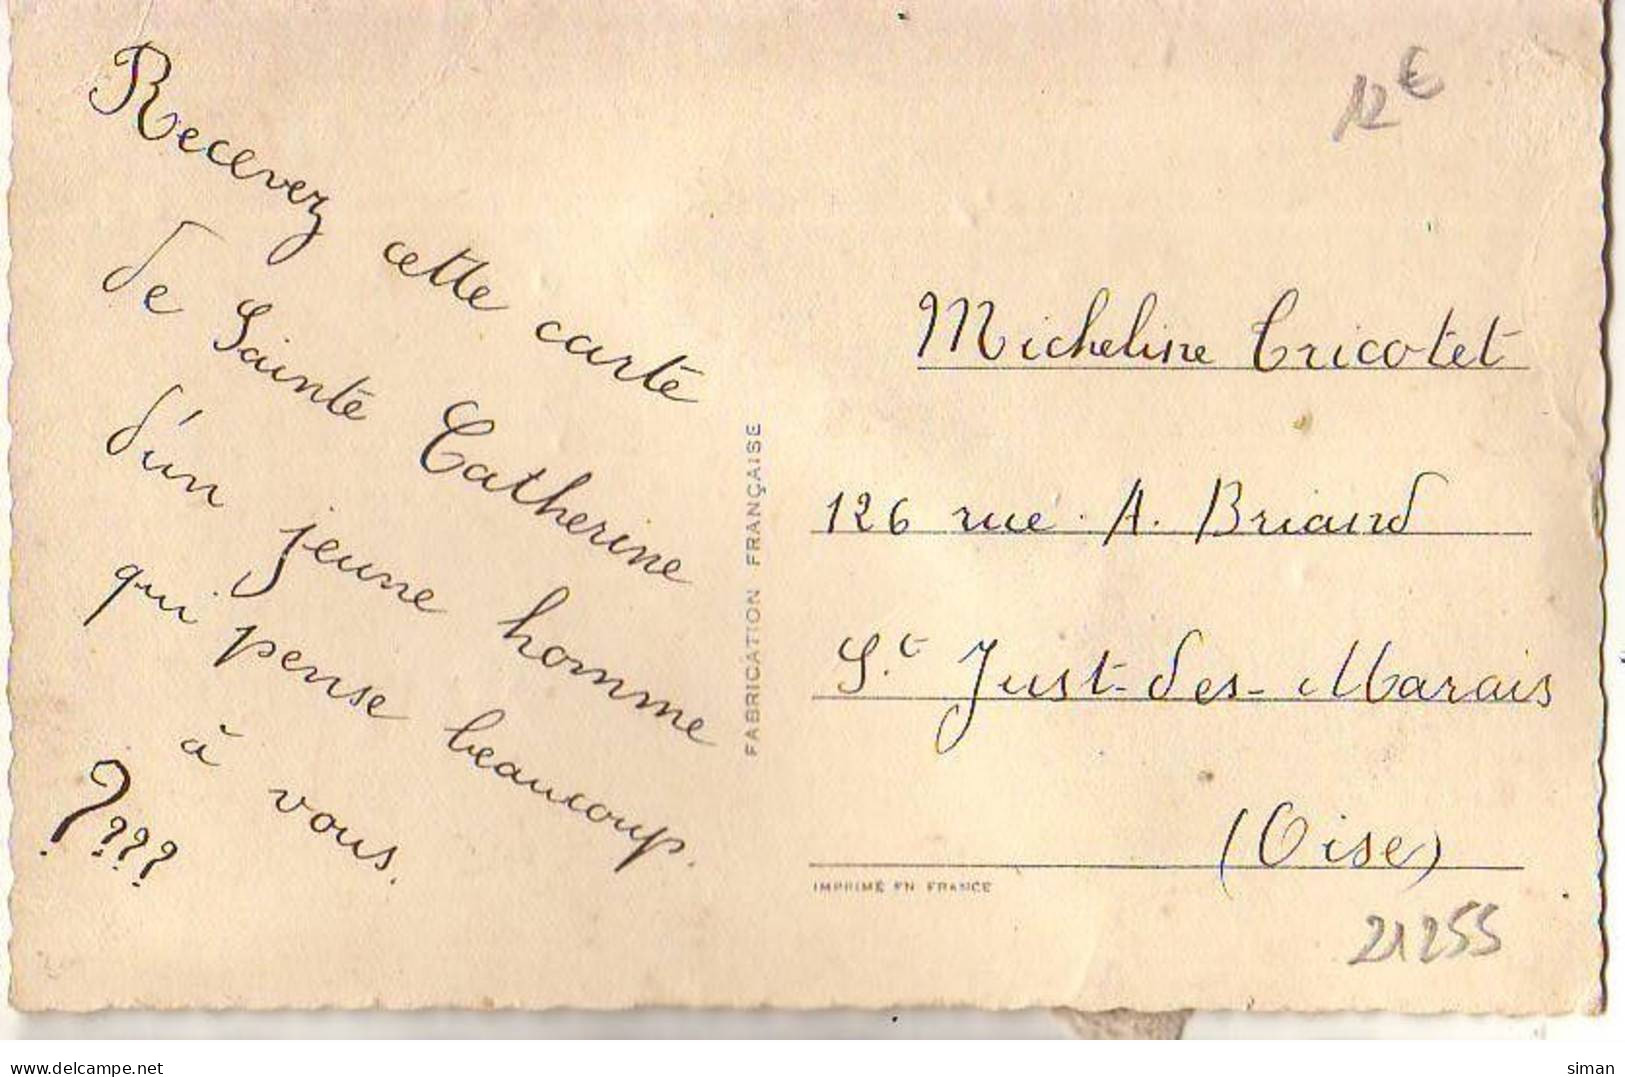 Recevez cette carte
de Sainte Catherine
d'un jeune homme
qui pense beaucoup
à vous.
????
FABRICATION FRANÇAISE
12€
Micheline Tricotet
126 rue A. Briand
St Just-des-Marais
(Oise)
IMPRIMÉ EN FRANCE
21255
www.delcampe.net
siman